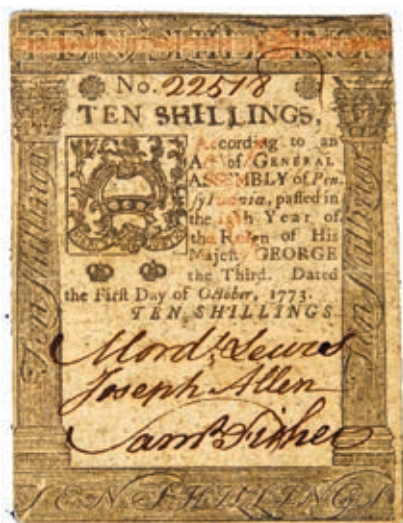 TEN SHILLINGS
No. 22518
TEN SHILLINGS,
According to an
Act of GENERAL
ASSEMBLY of Pen-
sylvania, passed in
the Year of
the Reign of His
Majesty GEORGE
the Third. Dated
the First Day of October, 1773.
TEN SHILLINGS
Mord. Lewis
Joseph Allen
Saml Fisher
Ten Shillings
Ten Shillings
TEN SHILLINGS